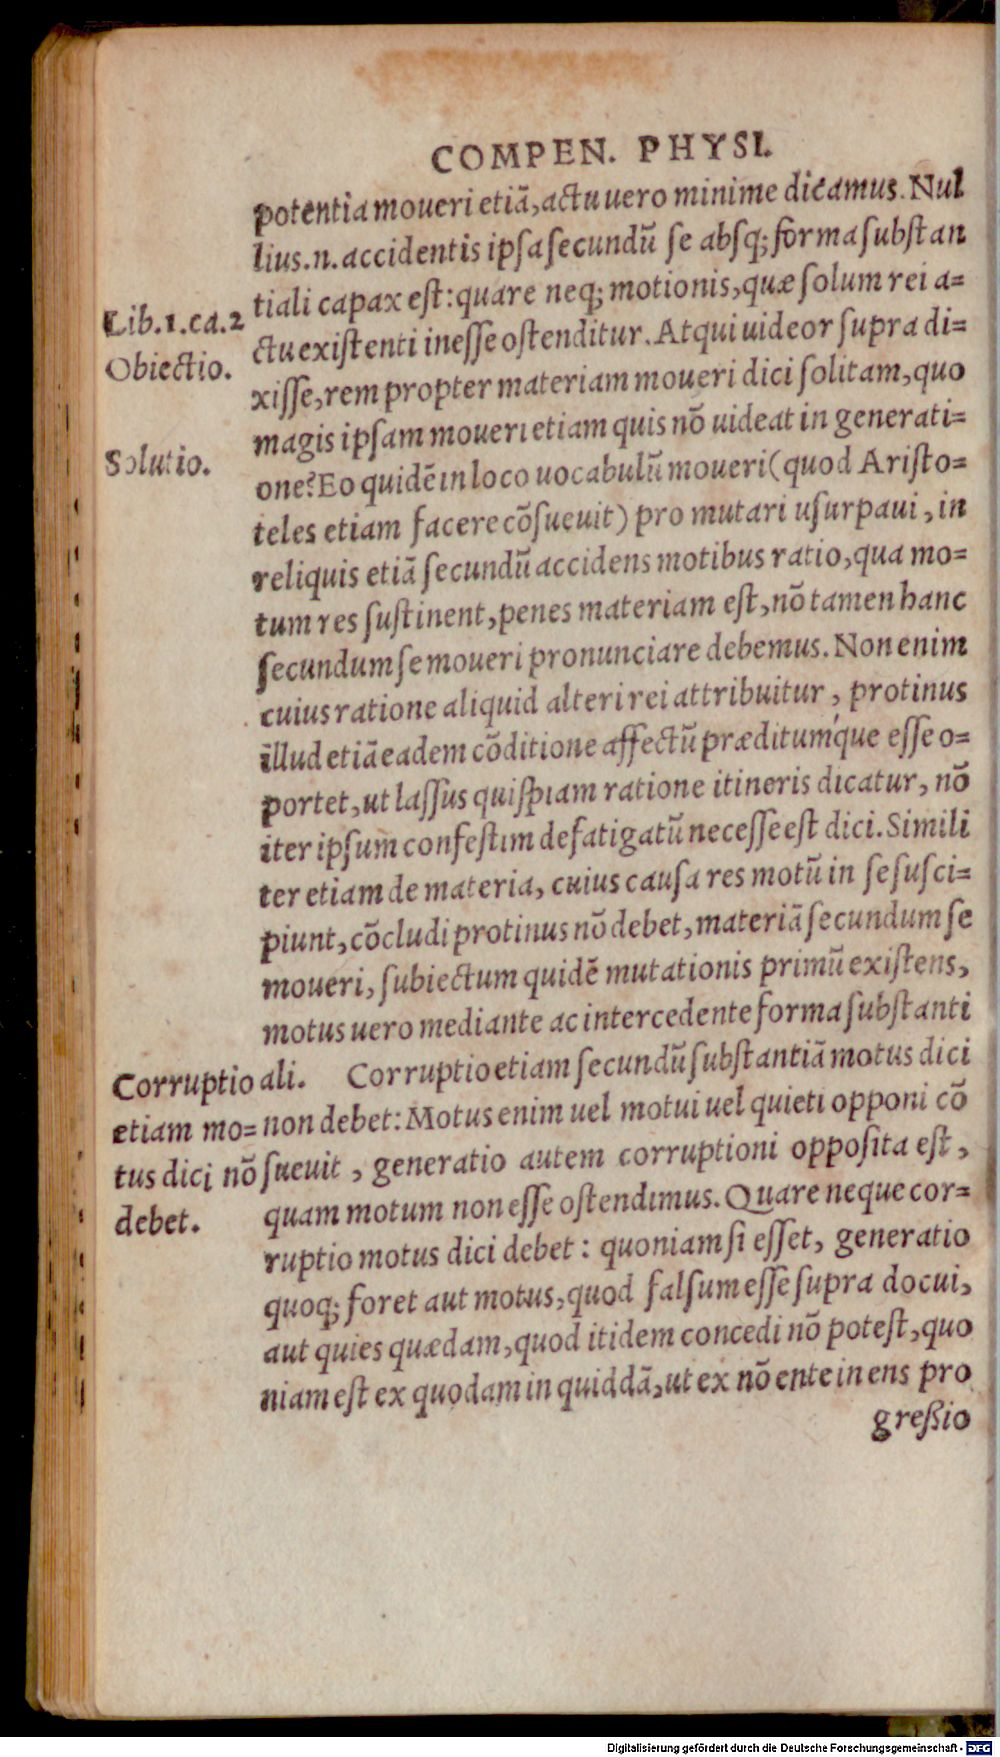 COMPEN. PHYSI.
potentia moueri etiã, actu uero minime dicamus. Nul
lius .n. accidentis ipsa secundũ se absq; forma substan
tiali capax est: quare neq; motionis, quæ solum rei a=
Lib.1.ca.2
ctu existenti inesse ostenditur. Atqui uideor supra di=
Obiectio.
xisse, rem propter materiam moueri dici solitam, quo
magis ipsam moueri etiam quis nõ uideat in generati=
Solutio.
one? Eo quidẽ in loco uocabulũ moueri (quod Aristo=
teles etiam facere cõsueuit) pro mutari usurpaui, in
reliquis etiã secundũ accidens motibus ratio, qua mo=
tum res sustinent, penes materiam est, nõ tamen hanc
secundum se moueri pronunciare debemus. Non enim
cuius ratione aliquid alteri rei attribuitur, protinus
illud etiã eadem cõditione affectũ præditumq́ue esse o=
portet, ut lassus quispiam ratione itineris dicatur, nõ
iter ipsum confestim defatigatũ necesse est dici. Simili
ter etiam de materia, cuius causa res motũ in se susci=
piunt, cõcludi protinus nõ debet, materiã secundum se
moueri, subiectum quidẽ mutationis primũ existens,
motus uero mediante ac intercedente forma substanti
ali. Corruptio etiam secundũ substantiã motus dici
non debet: Motus enim uel motui uel quieti opponi cõ
sueuit, generatio autem corruptioni opposita est,
quam motum non esse ostendimus. Quare neque cor=
Corruptio
etiam mo=
tus dici nõ
debet.
ruptio motus dici debet: quoniam si esset, generatio
quoq; foret aut motus, quod falsum esse supra docui,
aut quies quædam, quod itidem concedi nõ potest, quo
niam est ex quodam in quiddã, ut ex nõ ente in ens pro
greßio
Digitalisierung gefördert durch die Deutsche Forschungsgemeinschaft - DFG